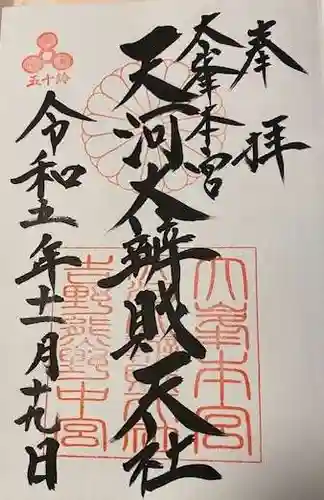 奉拝
大峯本宮
天河大辨財天社
五十鈴
令和五年十一月十九日
大峯本宮
吉野熊野中宮